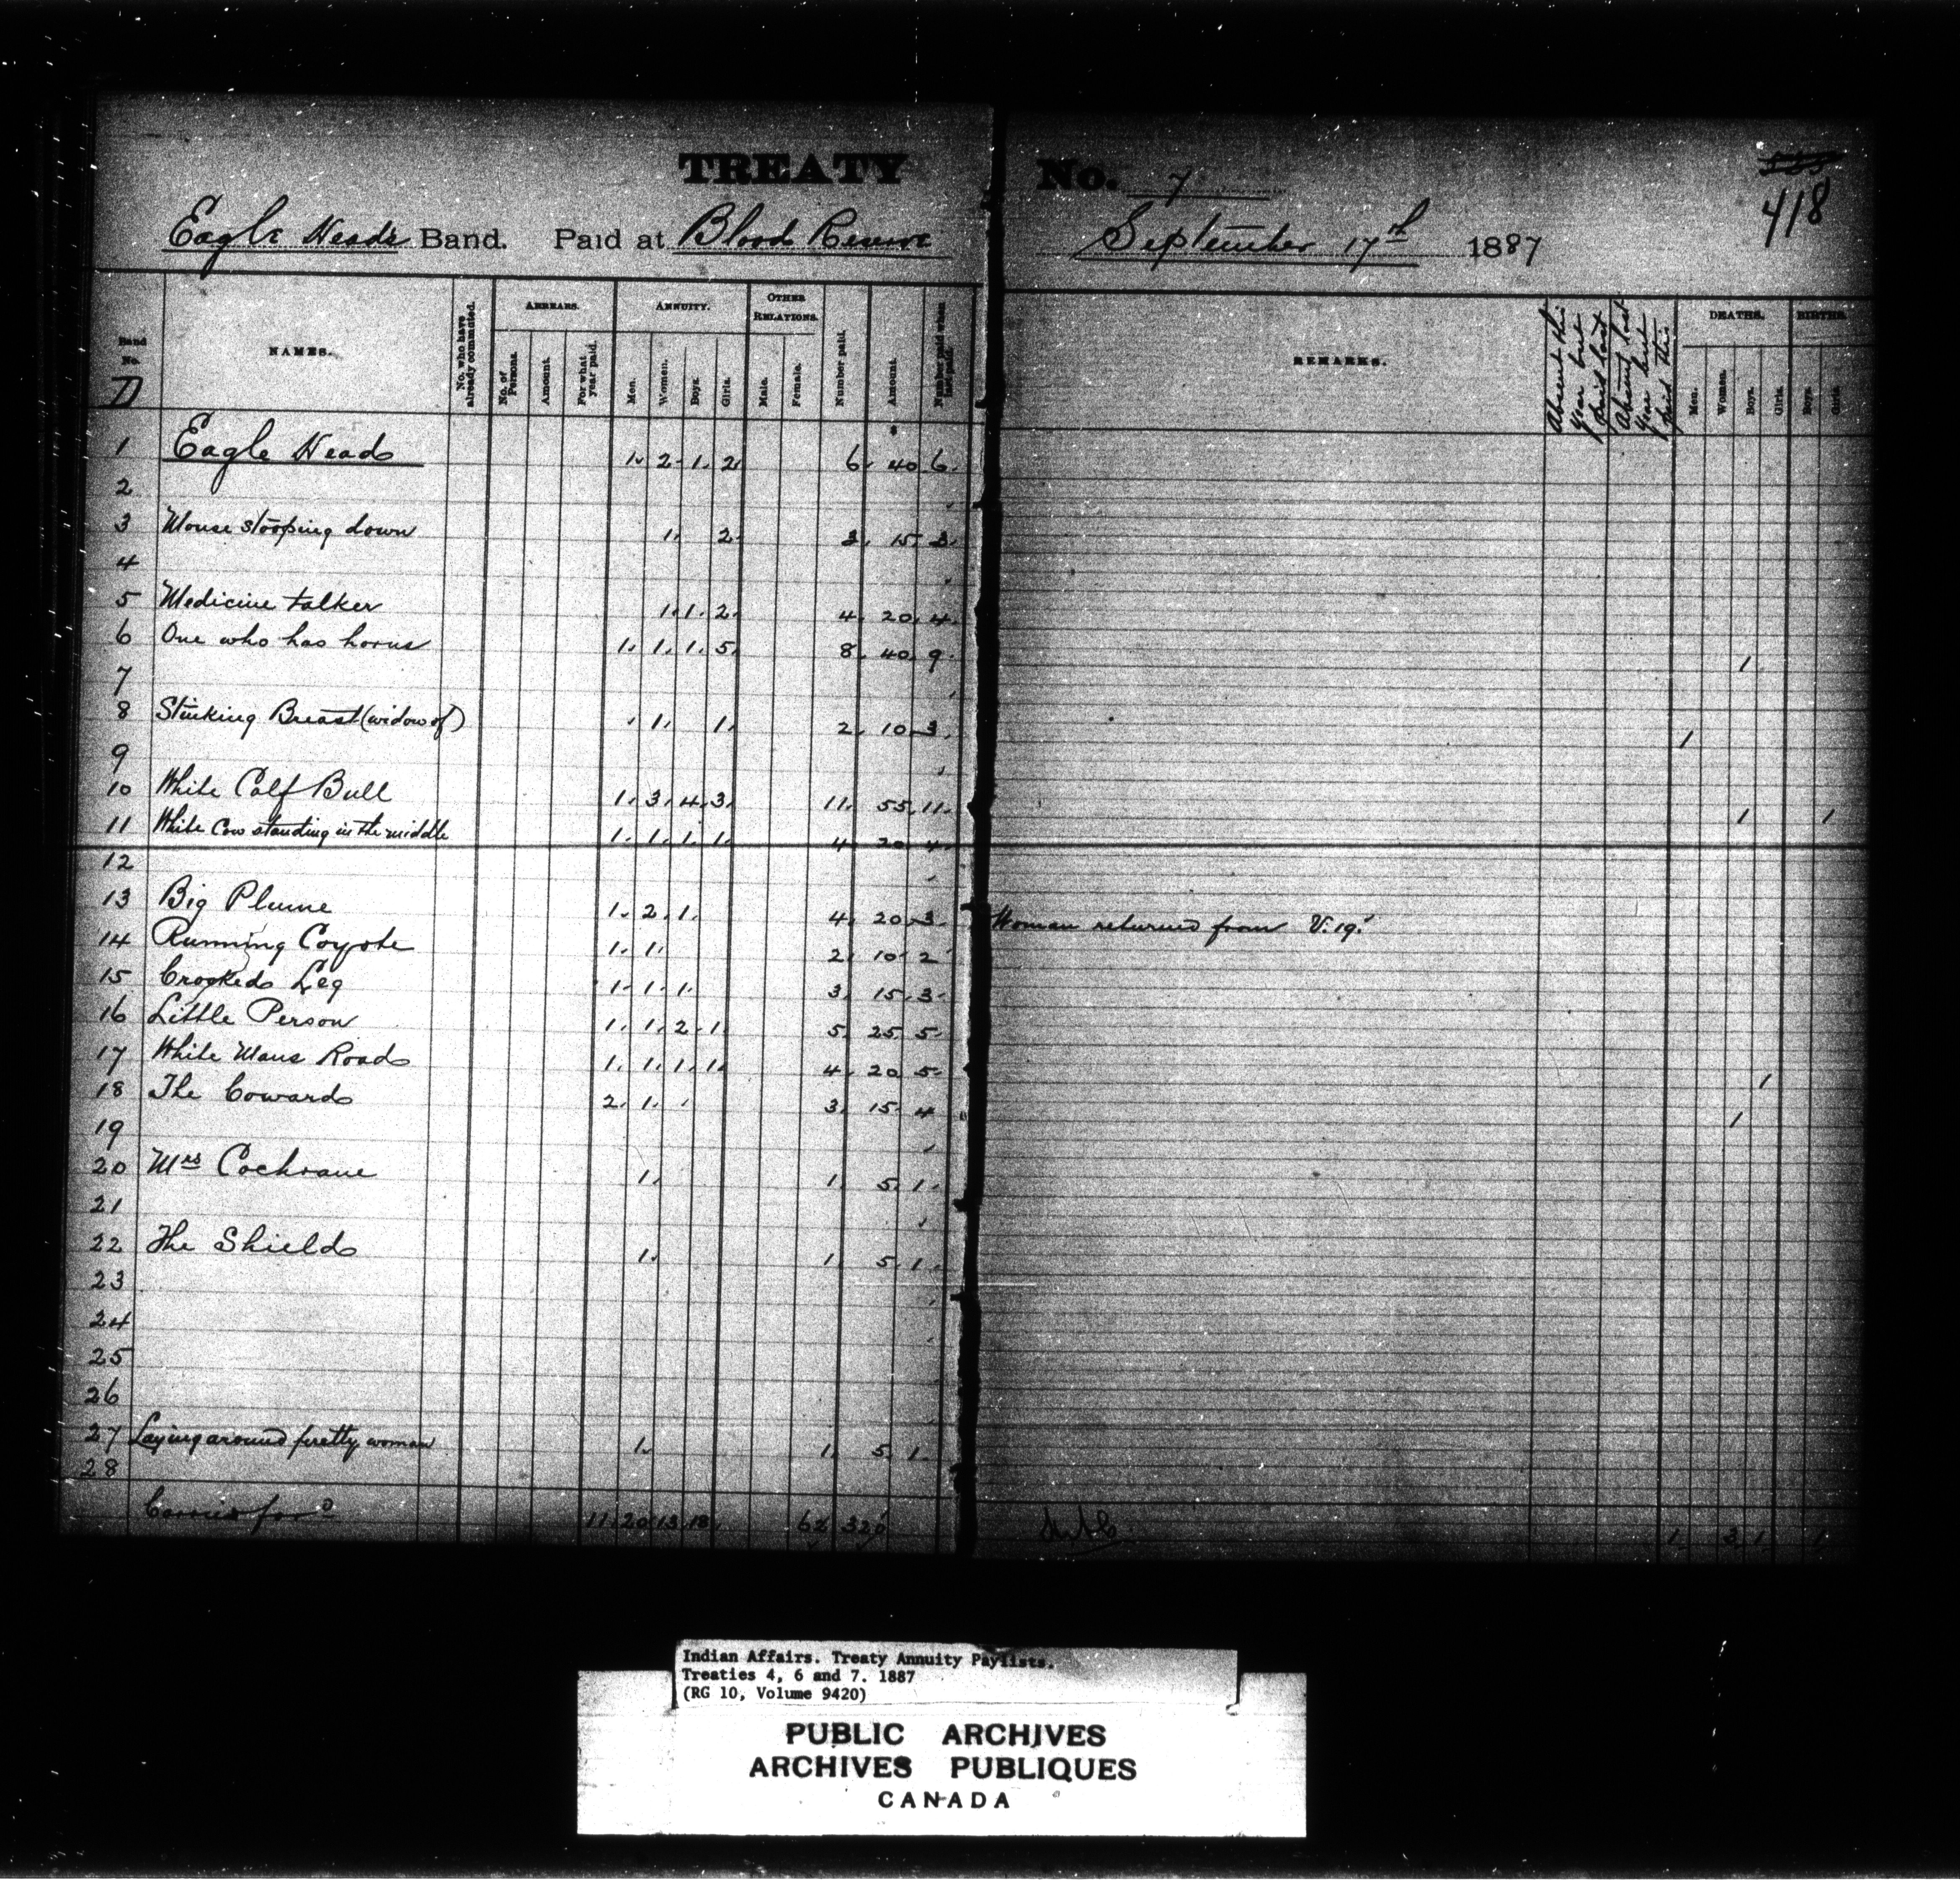 TREATY No. 7
418
Eagle Head's Band. Paid at Blood Reserve September 17th 1887
Band No. NAMES. No. who have already commuted. ARREARS. No. of Persons. Amount. For what year paid. ANNUITY. Men. Women. Boys. Girls. OTHER RELATIONS. Male. Female. Number paid. Amount. Number paid when last paid. REMARKS. Absent this year but paid last Absent last year but paid this DEATHS. Men. Women. Boys. Girls. BIRTHS. Boys. Girls.
D
$
1 Eagle Head 1. 2. 1. 2. 6. 40. 6.
2
3 Mouse stooping down 1. 2. 3. 15. 3.
4
5 Medicine talker 1. 1. 2. 4. 20. 4.
6 One who has horns 1. 1. 1. 5. 8. 40. 9. 1.
7
8 Stinking Breast (widow of) 1. 1. 2. 10. 3. 1
9
10 White Calf Bull 1. 3. 4. 3. 11. 55. 11. 1 1
11 White Cow standing in the middle 1. 1. 1. 1. 4. 20. 4.
12
13 Big Plume 1. 2. 1. 4. 20. 3. Woman returned from V. 19.
14 Running Coyote 1. 1. 2. 10. 2
15 Crooked Leg 1. 1. 1. 3. 15. 3.
16 Little Person 1. 1. 2. 1. 5. 25. 5.
17 White Mans Road 1. 1. 1. 1. 4. 20. 5. 1
18 The Coward 2. 1. 3. 15. 4 1
19
20 Mrs Cochrane 1. 1. 5. 1.
21
22 The Shield 1. 1. 5. 1.
23
24
25
26
27 Laying around pretty woman 1. 1. 5. 1.
28
Carried for'd 11. 20. 13. 18. 62 320 1. 3. 1. 1
Indian Affairs. Treaty Annuity Paylists.
Treaties 4, 6 and 7. 1887
(RG 10, Volume 9420)
PUBLIC ARCHIVES
ARCHIVES PUBLIQUES
CANADA